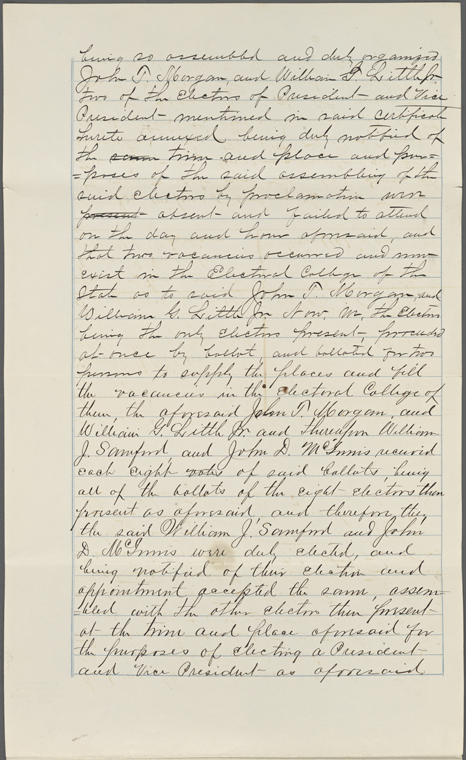 being so assembled and duly organized
John T. Morgan, and William G. Little Jr.
two of the Electors of President and Vice
President mentioned in said certificate
hereto annexed being duly notified of
the time and place and pur=
=poses of the said assembling of the
said electors by proclamation were
present absent and failed to attend
on the day and hour aforesaid, and
that two vacancies occurred and now
exist in the Electoral College of the
State as to said John T. Morgan, and
William G. Little Jr. Now, we, the Electors
being the only electors present, proceeded
at once by ballot, and balloted for two
persons to supply the places and fill
the vacancies in the electoral College of
them, the aforesaid John T. Morgan, and
William G. Little Jr. and thereupon William
J. Samford, and John D. McInnis received
each eight votes of said ballots, being
all of the ballots of the eight electors then
present as aforesaid and therefore, they
the said William J. Samford and John
D. McInnis were duly elected, and
being notified of their election and
appointment accepted the same, assem=
=bled with the other electors then present
at the time and place aforesaid for
the purposes of electing a President
and Vice President as aforesaid